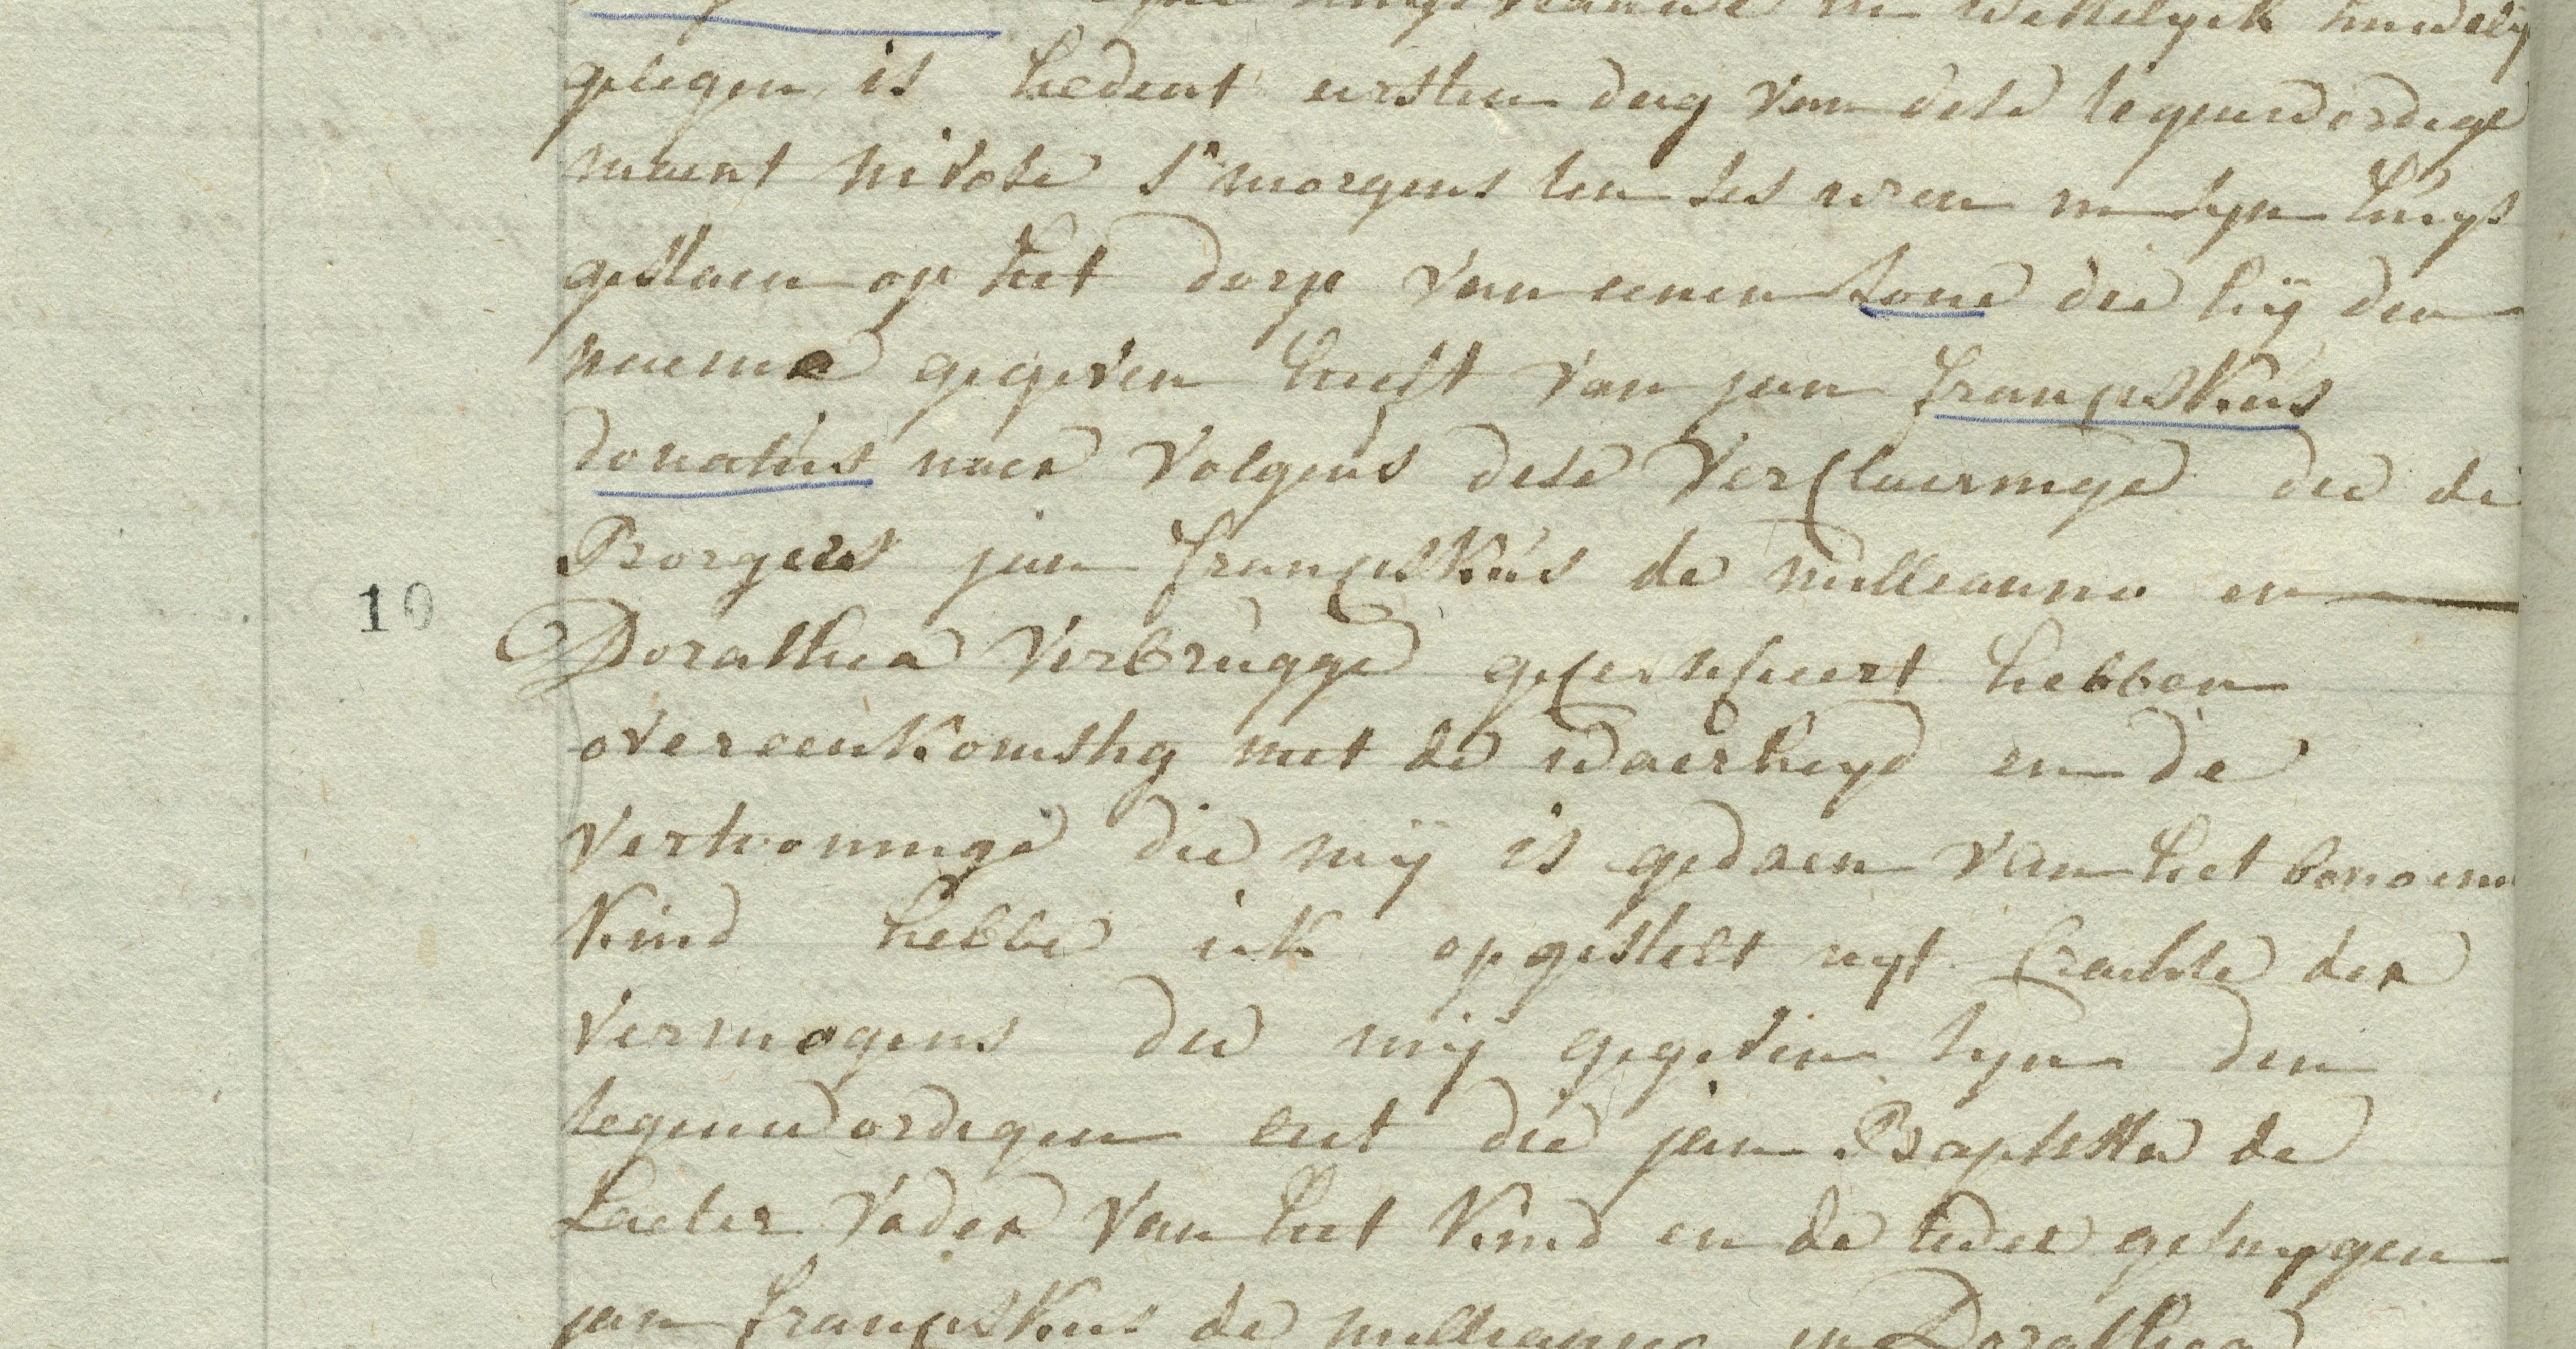 in wettelyck huwely
gelegen is hedent eersten dag van dese tegenwordige
maent nivose s'morgens ten ses uren in syn huys
gestaen op het dorp van eenen sone die hij den
naeme gegeven heeft van jan franciskus
donatus naer volgens dese verclaeringe die de
Borgers jan franciskus de mulleauno en
10
Dorathea Verbrugge gecertifieert hebben
overeenkomstig met de waerheyd en de
vertooninge die mij is gedaen van het benoem
Kind hebbe ick opgestelt uyt crachte der
vermogens die mij gegeven syn den
tegenwordigen act die jan Baptista de
Laeter vader van het kind en de twee getuygen
jan franciskus de mulleauno en Dorathea